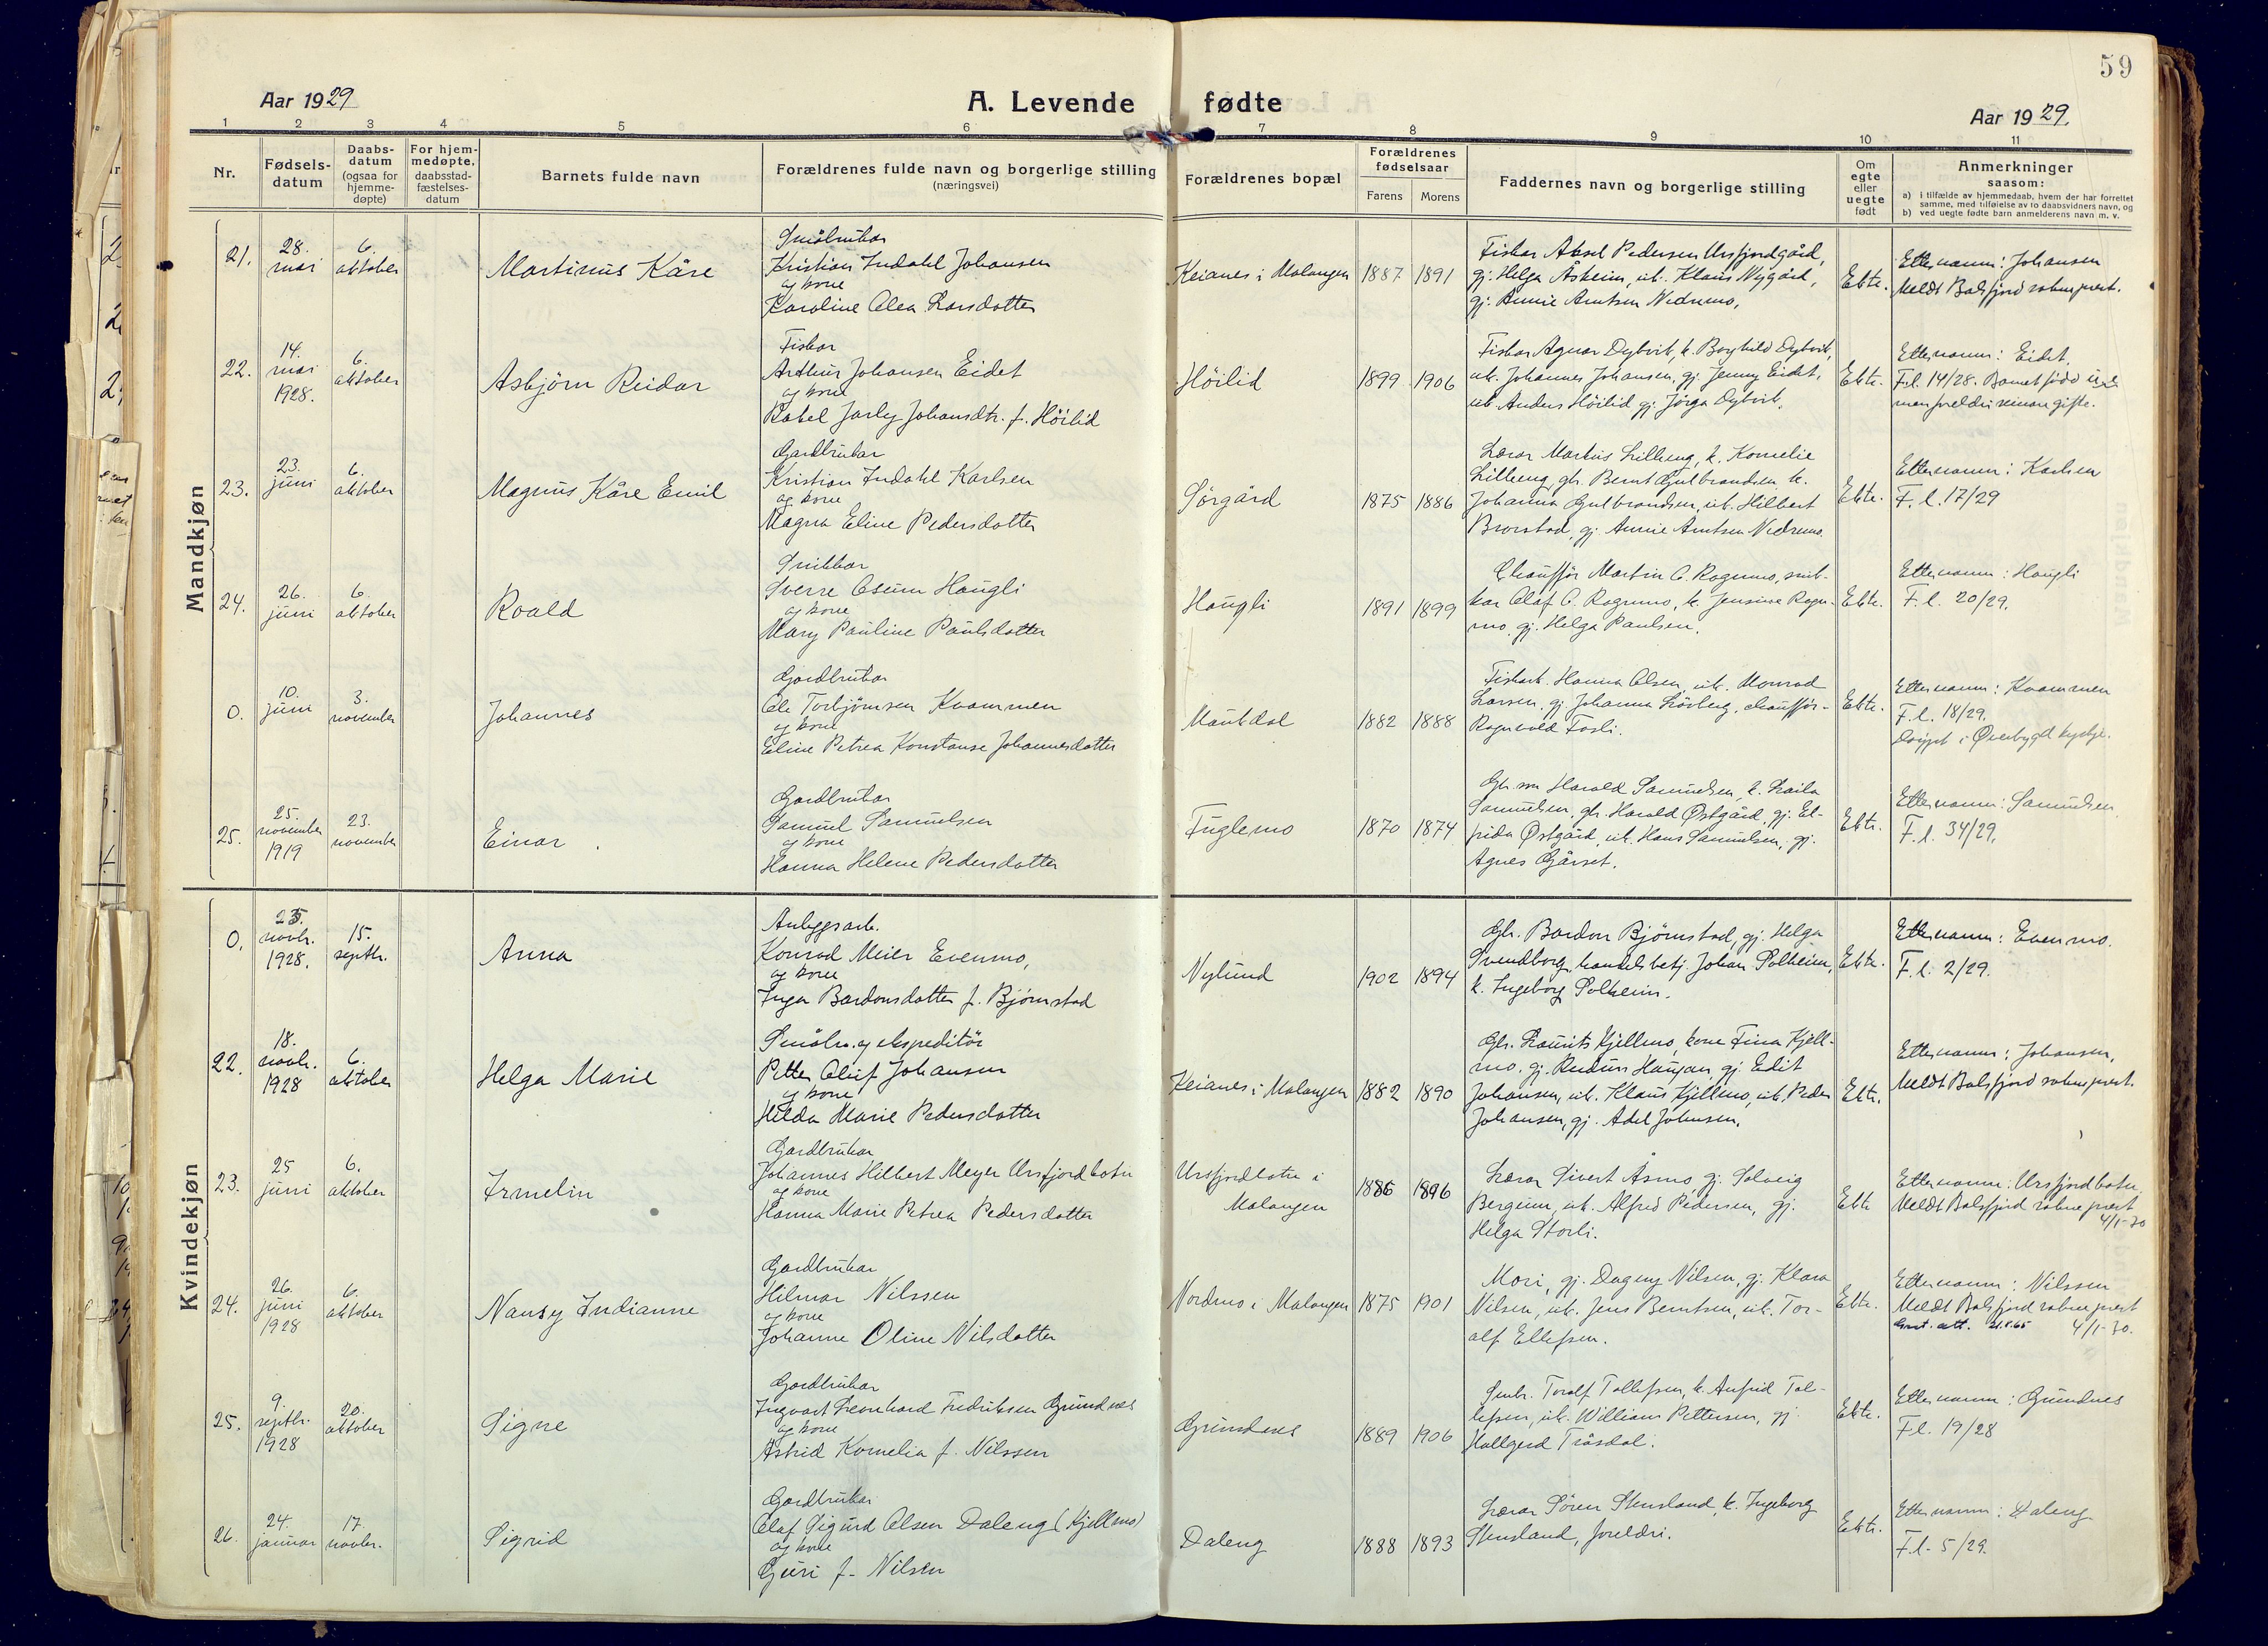 59
Aar 1929
A. Levende fødte
Aar 1929.
1 2 3 4 5 6 7 8 9 10 11
Nr.
Fødsels-
datum
Daabs-
datum
(ogsaa for
hjemme-
døpte)
For hjem-
medøpte,
daabsstad-
fæstelses-
datum
Barnets fulde navn
Forældrenes fulde navn og borgerlige stilling
(næringsvei)
Forældrenes bopæl
Forældrenes
fødselsaar
Farens Morens
Faddernes navn og borgerlige stilling
Om
egte
eller
uegte
født
Anmerkninger
saasom:
a) i tilfælde av hjemmedaab, hvem der har forrettet
samme, med tilføielse av to daabsvidners navn, og
b) ved uegte fødte barn anmelderens navn m. v.
Mandkjøn
21.
28.
mai
6.
oktober
Martinus Kåre
Småbrukar
Kristian Indahl Johansen
og kone
Karoline Olea Larsdotter
Keianes i Malangen
1887 1891
Fiskar Aksel Pedersen Ursfjordgård,
gj. Helga Åsheim, uk. Klaus Nygård,
gj. Annie Arntsen Nedremo.
Ekte.
Etternamn: Johansen
Meldt Balsfjord sokneprest.
22.
14.
mai
1928.
6.
oktober
Asbjörn Reidar
Fiskar
Arthur Johansen Eidet
og kone
Rakel Jarly Johansdtr. f. Höilid
Höilid
1899 1906
Fiskar Agnar Dybvik, k. Borghild Dybvik,
uk. Johannes Johansen, gj. Jenny Eidet,
uk. Anders Höilid gj. Jörga Dybvik.
Ekte.
Etternamn: Eidet,
F.l. 14/28. Barnet född
men foreldri seinare gifte.
23.
23.
juni
6.
oktober
Magnus Kåre Emil
Gardbrukar
Kristian Indahl Karlsen
og kone
Magna Eline Pedersdotter
Sörgård
1875 1886
Lærar Markus Lilleeng, k. Kornelie
Lilleeng, gb. Bernt Gulbrandsen k.
Johanna Gulbrandsen, uk. Hilbert
Brorstad, gj. Annie Arntsen Nedremo.
Ekte.
Etternamn: Karlsen
F. l. 17/29
24.
26.
juni
6.
oktober
Roald
Snikkar
Sverre Osenn Haugli
og kone
Mary Pauline Paulsdotter
Haugli
1891 1899
Chauffør Martin C. Rognmo, snik-
kar Olaf C. Rognmo, k. Jensine Rogn-
mo, gj. Helga Paulsen.
Ekte.
Etternamn: Haugli
F. l. 20/29.
0.
10.
juni
3.
november
Johannes
Gardbrukar
Ole Torbjörnsen Kvammen
og kone
Eline Petrea Konstanse Johannesdotter
Maukdal
1882 1888
Fiskark. Hanna Olsen, uk. Monrad
Larsen, gj. Johanna Lövberg, chauffør-
Ragnvald Fosli.
Ekte.
Etternamn: Kvammen
F. l. 18/29.
Döypt i Øverbygd kyrkje.
25.
25.
november
1919
23.
november
Einar
Gardbrukar
Samuel Samuelsen
og kone
Hanna Helene Pedersdotter
Fuglemo
1870 1874
Gb. sn Harald Samuelsen, k. Laila
Samuelsen, gb. Harald Østgård, gj. El-
frida Østgård, uk. Hans Samuelsen, gj.
Agnes Gårset.
Ekte.
Etternamn: Samuelsen
F. l. 34/29.
Kvindekjøn
0.
25.
novbr.
1928.
15.
septbr.
Anna
Anleggsarb.
Konrad Meier Evenmo,
og kone
Inga Bardonsdotter f. Björnstad
Nylund
1902 1894
Gb. Bardon Björnstad, gj. Helga
Svendborg, handelsbetj. Johan Solheim,
k. Ingeborg Solheim.
Ekte.
Etternamn: Evenmo.
F. l. 2/29.
22.
18.
novbr.
1928
6.
oktober
Helga Marie
Småbr. og ekspeditör
Petter Oluf Johansen
og kone
Hilda Marie Pedersdotter
Keianes i Malangen
1882 1890
Gb. Laurits Kjellmo, kone Fina Kjell-
mo, gj. Reidun Haugan, gj. Edit
Johansen, uk. Klaus Kjellmo, uk. Peder
Johansen, gj. Adel Johnsen.
Ekte.
Etternamn: Johansen,
Meldt Balsfjord sokneprest.
23.
25
juni
6.
oktober
Irmelin
Gardbrukar
Johannes Hilbert Meyer Ursfjordbotn
og kone
Hanna Marie Petrea Pedersdotter
Ursfjordbotn i
Malangen
1886 1896
Lærar Sivert Åsmo, gj. Solveig
Bergum, uk. Alfred Pedersen, gj.
Helga Storli.
Ekte
Etternamn: Ursfjordbotn
Meldt Balsfjord sokneprest
4/1-30
24.
26.
juni
1928
6.
oktober
Nansy Indianne
Gardbrukar
Hilmar Nilssen
og kone
Johanne Oline Nilsdotter
Nordmo i Malangen
1875 1901
Mori, gj. Dagny Nilsen, gj. Klara
Nilsen, uk. Jens Berntsen, uk. Tor-
alf Ellefsen.
Ekte.
Etternamn: Nilssen
Meldt Balsfjord sokneprest
4/1-30.
att. 21.8.65
25.
9.
septbr.
1928
20.
oktober
Signe
Gardbrukar
Ingvart Leonhard Fredriksen Grundnes
og kone
Astrid Kornelia f. Nilssen
Grundnes
1889 1906
Småbr. Toralf Tollefsen, k. Anfrid Tol-
lefsen, uk. William Pettersen, gj.
Hallgerd Tråsdal.
Ekte.
Etternamn: Grundnes
F.l. 19/28
26.
24.
januar
17.
novbr.
Sigrid
Gardbrukar
Olaf Sigurd Olsen Daleng (Kjellmo)
og kone
Guri f. Nilsen
Daleng
1888 1893
Lærar Sören Stensland, k. Ingeborg
Stensland, foreldri.
Ekte.
Etternamn: Daleng
F.l. 5/29.